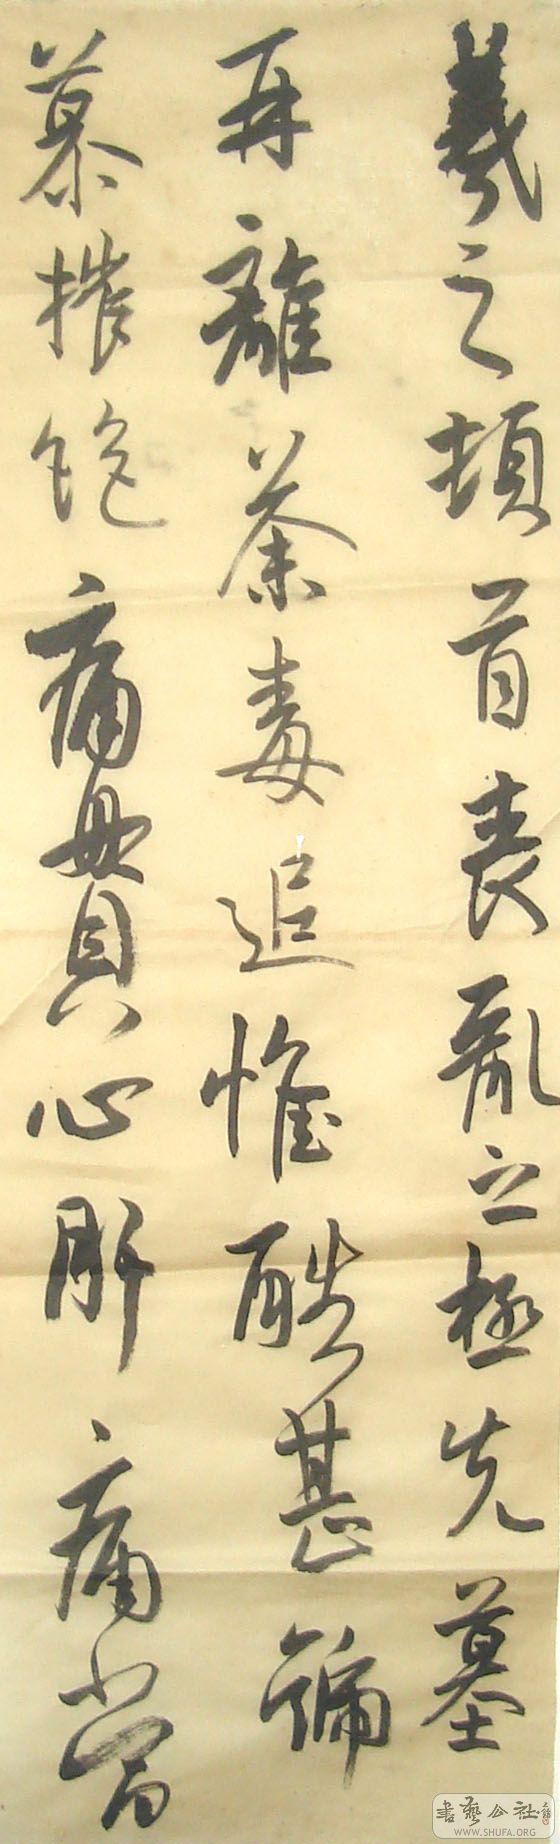 羲之頓首喪亂之極先墓
再離荼毒追惟酷甚號
慕摧絕痛貫心肝痛當
書藝公社
WWW.SHUFA.ORG